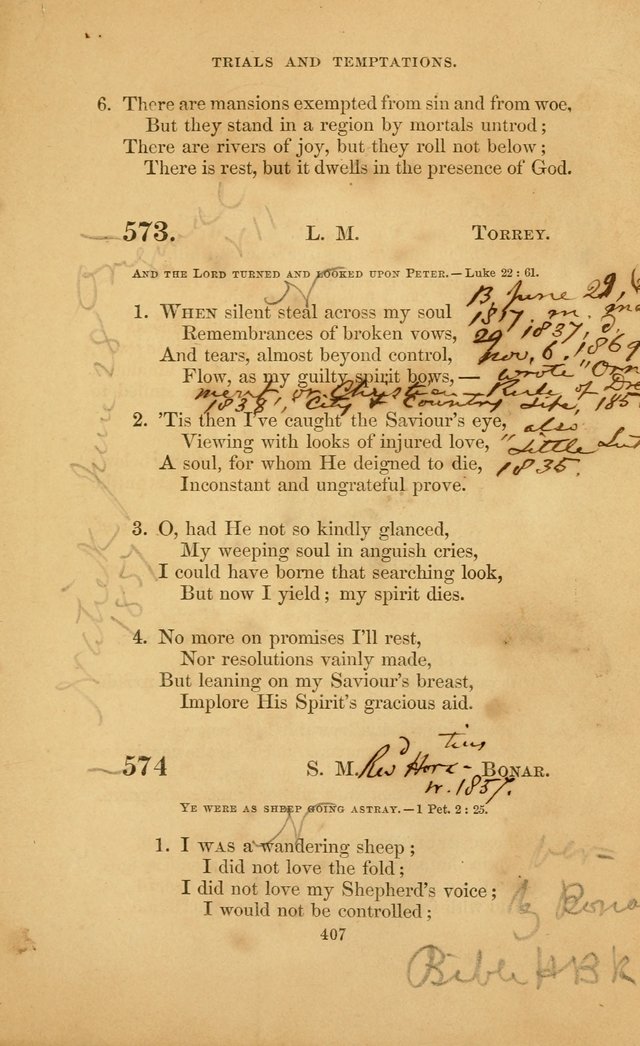 TRIALS AND TEMPTATIONS.
6. There are mansions exempted from sin and from woe,
But they stand in a region by mortals untrod;
There are rivers of joy, but they roll not below;
There is rest, but it dwells in the presence of God.
Original
573. L. M. TORREY.
AND THE LORD TURNED AND LOOKED UPON PETER.—Luke 22 : 61.
B. June 29,
1. WHEN silent steal across my soul
1817. m.
Remembrances of broken vows,
29 1837, d.
And tears, almost beyond control,
Nov. 6. 1869
Flow, as my guilty spirit bows,—
wrote "Orna
ment, or Christian Rule of Dre
1838, City & Country Life, 185
2. 'Tis then I've caught the Saviour's eye,
also
Viewing with looks of injured love,
"Little
A soul, for whom He deigned to die,
1835.
Inconstant and ungrateful prove.
3. O, had He not so kindly glanced,
My weeping soul in anguish cries,
I could have borne that searching look,
But now I yield; my spirit dies.
Natick June 28
1857
4. No more on promises I'll rest,
Nor resolutions vainly made,
But leaning on my Saviour's breast,
Implore His Spirit's gracious aid.
574 S. M. Rev Hora- BONAR.
tius
w. 1857.
YE WERE AS SHEEP GOING ASTRAY.—1 Pet. 2 : 25.
1. I WAS a wandering sheep;
I did not love the fold;
I did not love my Shepherd's voice;
I would not be controlled;
ver-
by Bona
407
Bible H B k